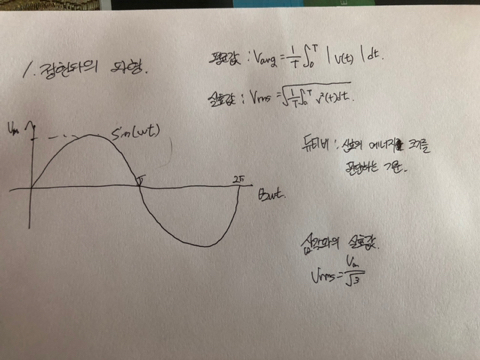 1. 정현파의 파형.
평균값 : Vavg = 1/T ∫₀ᵀ | v(t) | dt.
실효값 : Vrms = √(1/T ∫₀ᵀ v²(t)dt.
Vm
Sin(wt)
π
2π
wt.
듀티비 : 신호의 에너지 크기를
판단하는 기준.
삼각파의 실효값
Vrms = Vm/√3